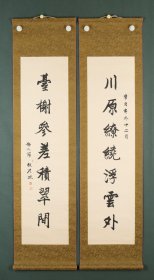 川原繚繞浮雲外
臺榭參差積翠間